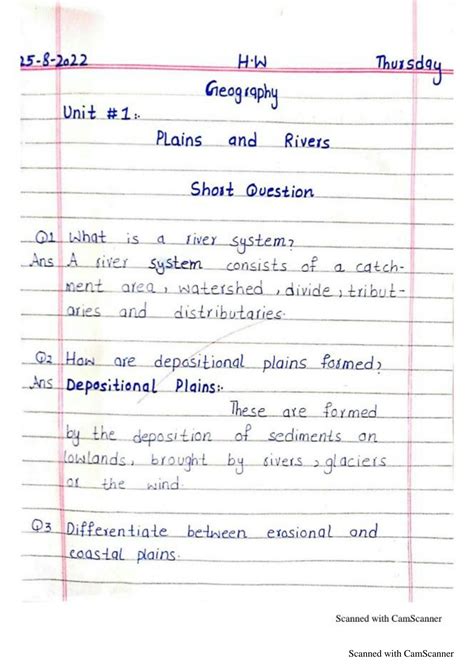 25-8-2022 H.W Thursday
Geography
Unit #1:-
Plains and Rivers
Short Question
Q1 What is a river system?
Ans A river system consists of a catch-
ment area, watershed, divide, tribut-
aries and distributaries.
Q2 How are depositional plains formed?
Ans Depositional Plains:-
These are formed
by the deposition of sediments on
lowlands, brought by rivers, glaciers
or the wind.
Q3 Differentiate between erosional and
coastal plains.
Scanned with CamScanner
Scanned with CamScanner